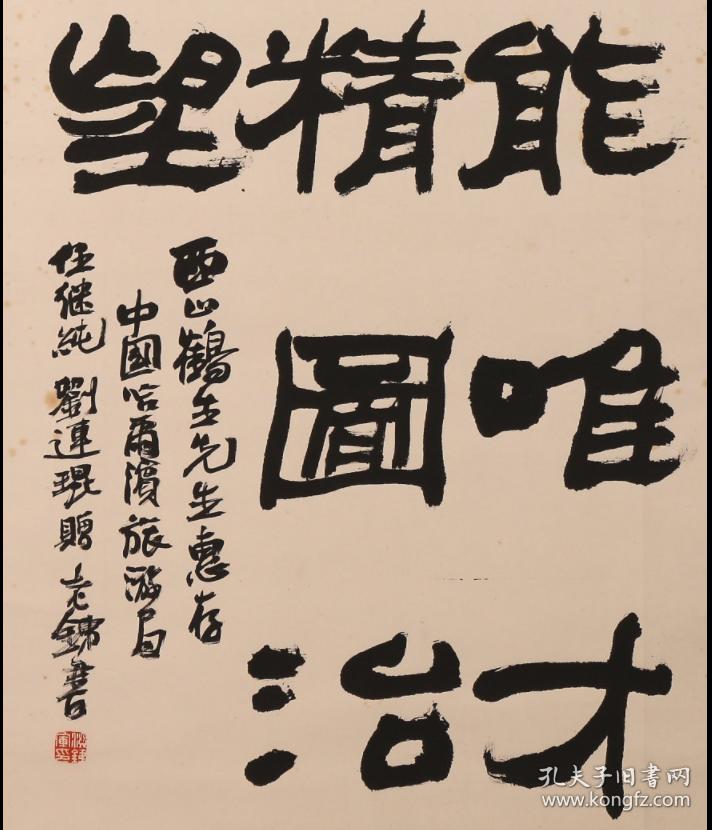 能唯才
精圖治
望
西山鶴主先生惠存
中國哈爾濱旅游局
任継純 劉連琨贈 老書
孔夫子旧书网
www.kongfz.com